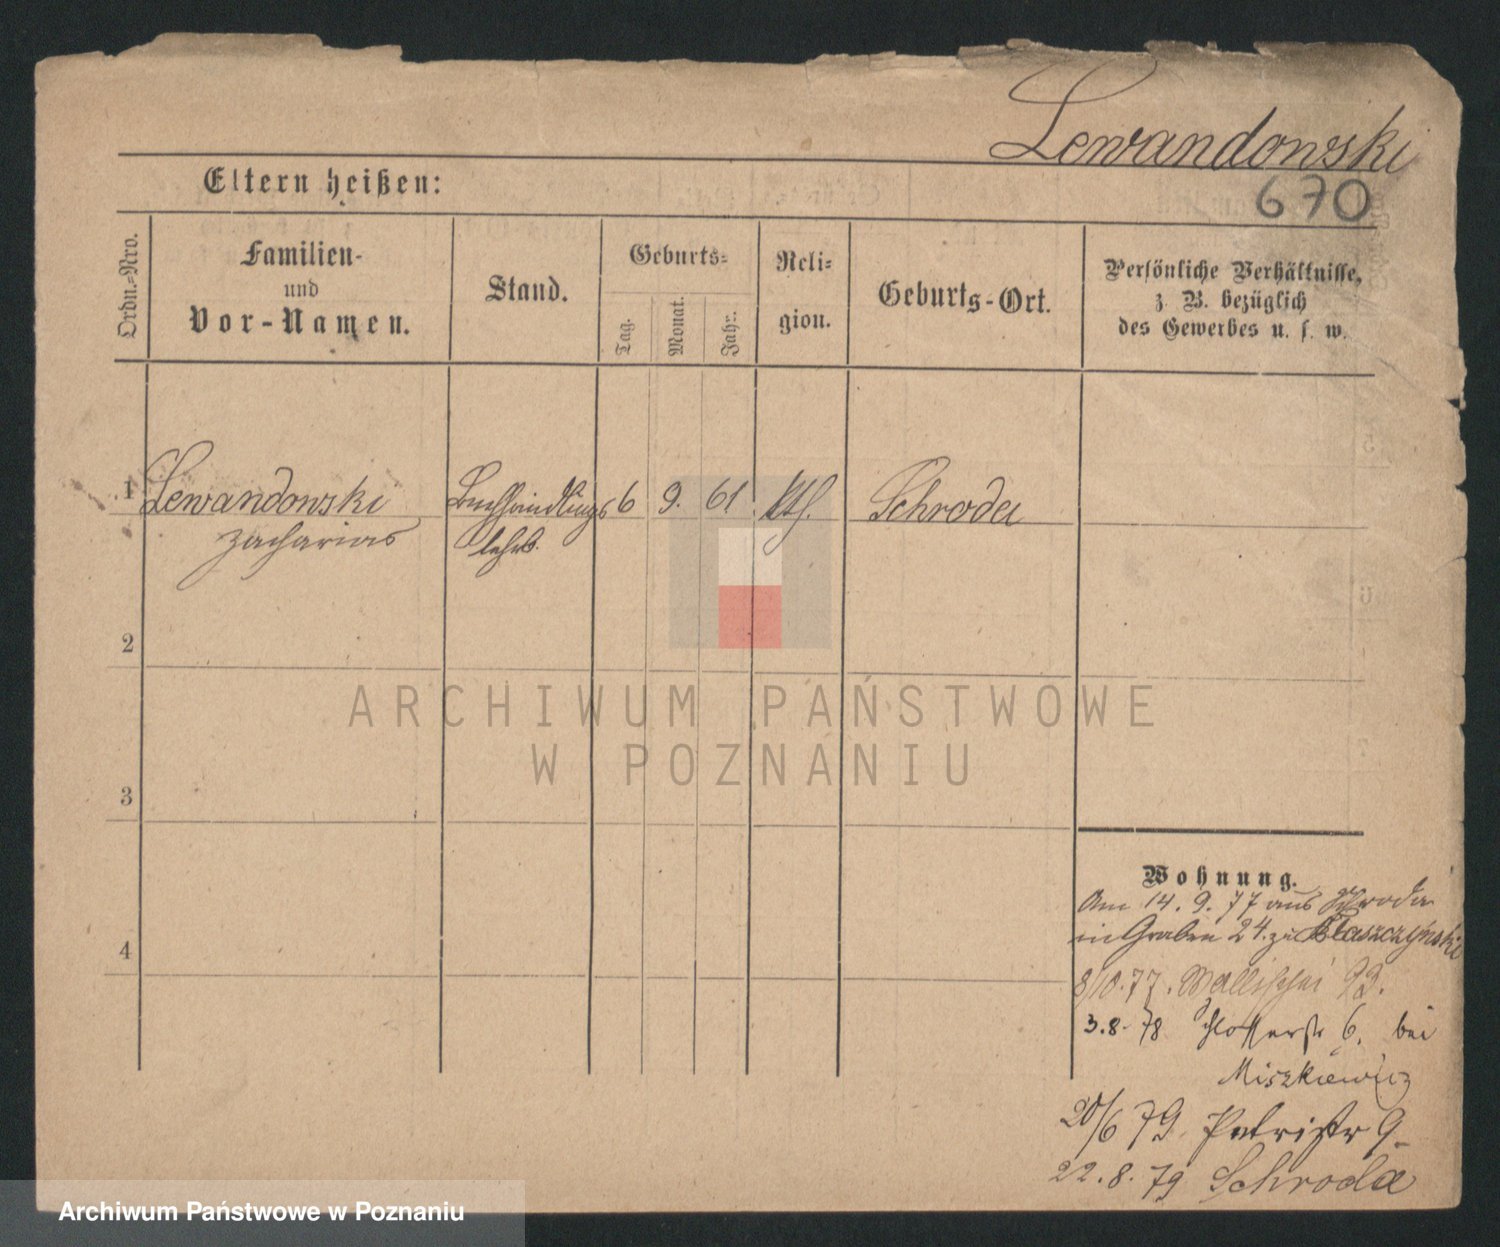 Lewandowski
670
Eltern heißen:
Ordn.-Nro.
Familien-
und
Vor-Namen.
Stand.
Geburts-
Tag.
Monat.
Jahr.
Reli-
gion.
Geburts-Ort.
Persönliche Verhältnisse,
z. B. bezüglich
des Gewerbes u. s. w.
1 Lewandowski Buchhandlungs 6 9. 61. kth. Schroda
Zacharias lehrl.
2
3
4
Wohnung.
Am 14. 9. 77 aus Schroda
in Graben 24. zu Błaszczyński
8/10.77. Wallischei 93.
3.8.78 Schlosserstr 6. bei
Miszkiewicz
20/6 79. Petristr 9.
22.8.79 Schroda
ARCHIWUM PAŃSTWOWE
W POZNANIU
Archiwum Państwowe w Poznaniu